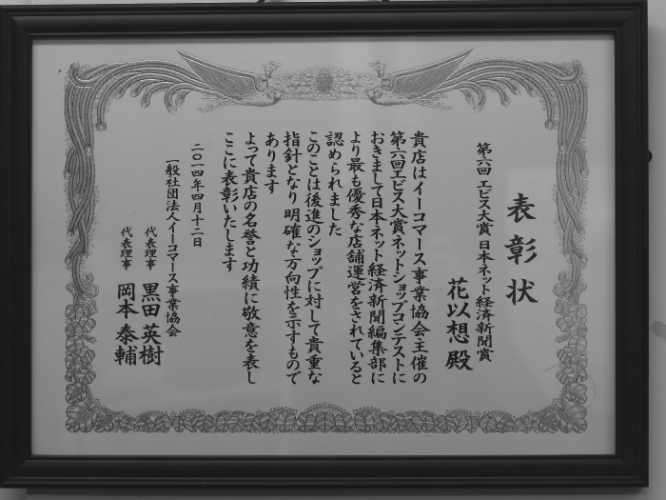 表彰状
第六回 エビス大賞 日本ネット経済新聞賞
花以想 殿
貴店はイーコマース事業協会主催の
第六回エビス大賞ネットショップコンテストに
おきまして日本ネット経済新聞編集部に
より最も優秀な店舗運営をされていると
認められました
このことは後進のショップに対して貴重な
指針となり明確な方向性を示すもので
あります
よって貴店の名誉と功績に敬意を表し
ここに表彰いたします
二〇一四年四月十二日
一般社団法人イーコマース事業協会
代表理事 黒田 英樹
代表理事 岡本 泰輔